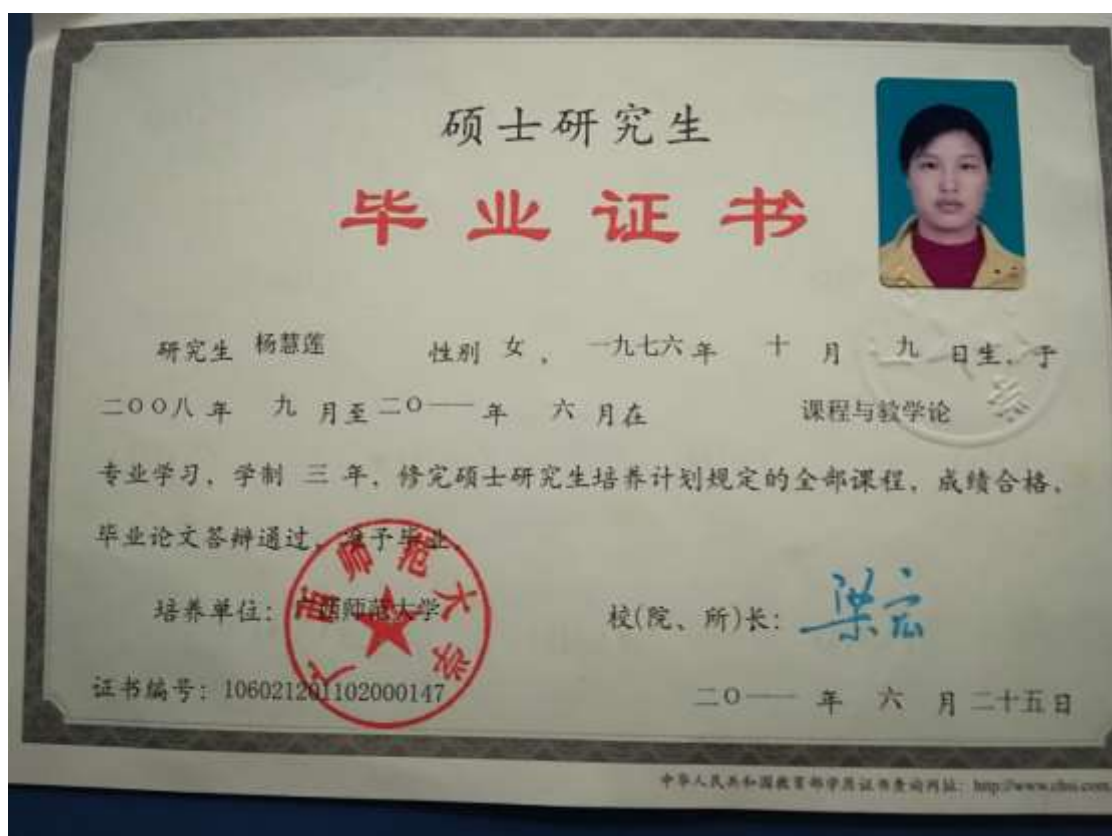 硕士研究生
毕业证书
研究生 杨慧莲 性别 女 , 一九七六 年 十 月 九 日生, 于
二〇〇八 年 九 月至 二〇一一 年 六 月在 课程与教学论
专业学习, 学制 三 年, 修完硕士研究生培养计划规定的全部课程, 成绩合格,
毕业论文答辩通过, 准予毕业。
培养单位: 广西师范大学 校(院、所)长: 梁宏
广西师范大学
证书编号: 106021201102000147 二〇一一 年 六 月 二十五日
中华人民共和国教育部学历证书查询网址: http://www.chsi.com.